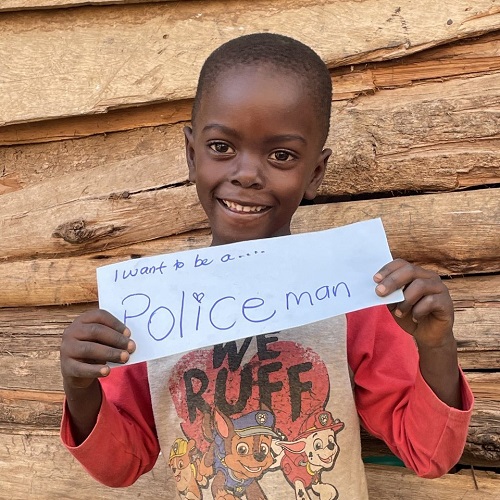 I want to be a....
Police man
WE
RUFF